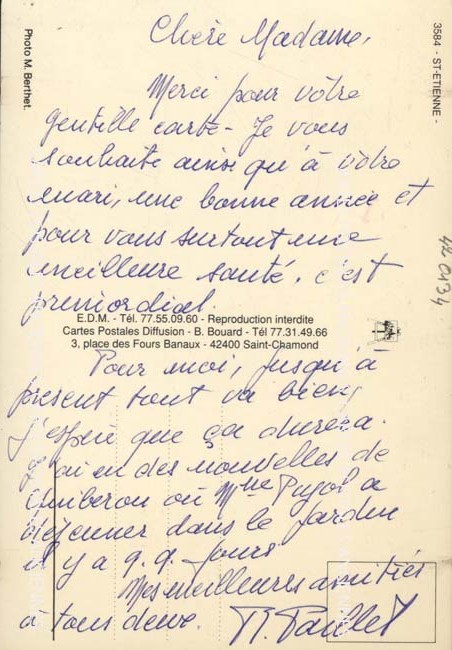 Chère Madame,
Merci pour vôtre
gentille carte - Je vous
souhaite ainsi qu'à vôtre
mari, une bonne année et
pour vous surtout une
meilleure santé, c'est
primordial.
E.D.M. - Tél. 77.55.09.60 - Reproduction interdite
Cartes Postales Diffusion - B. Bouard - Tél 77.31.49.66
3, place des Fours Banaux - 42400 Saint-Chamond
Pour moi, jusqu'à
présent tout va bien,
j'espère que ça durera.
J'ai eu des nouvelles de
Quiberon où Mme Pujol a
déjeuner dans le jardin
il y a q.q. jours
Mes meilleures amitiés
à tous deux.
Photo M. Berthet.
3584 - ST-ETIENNE -